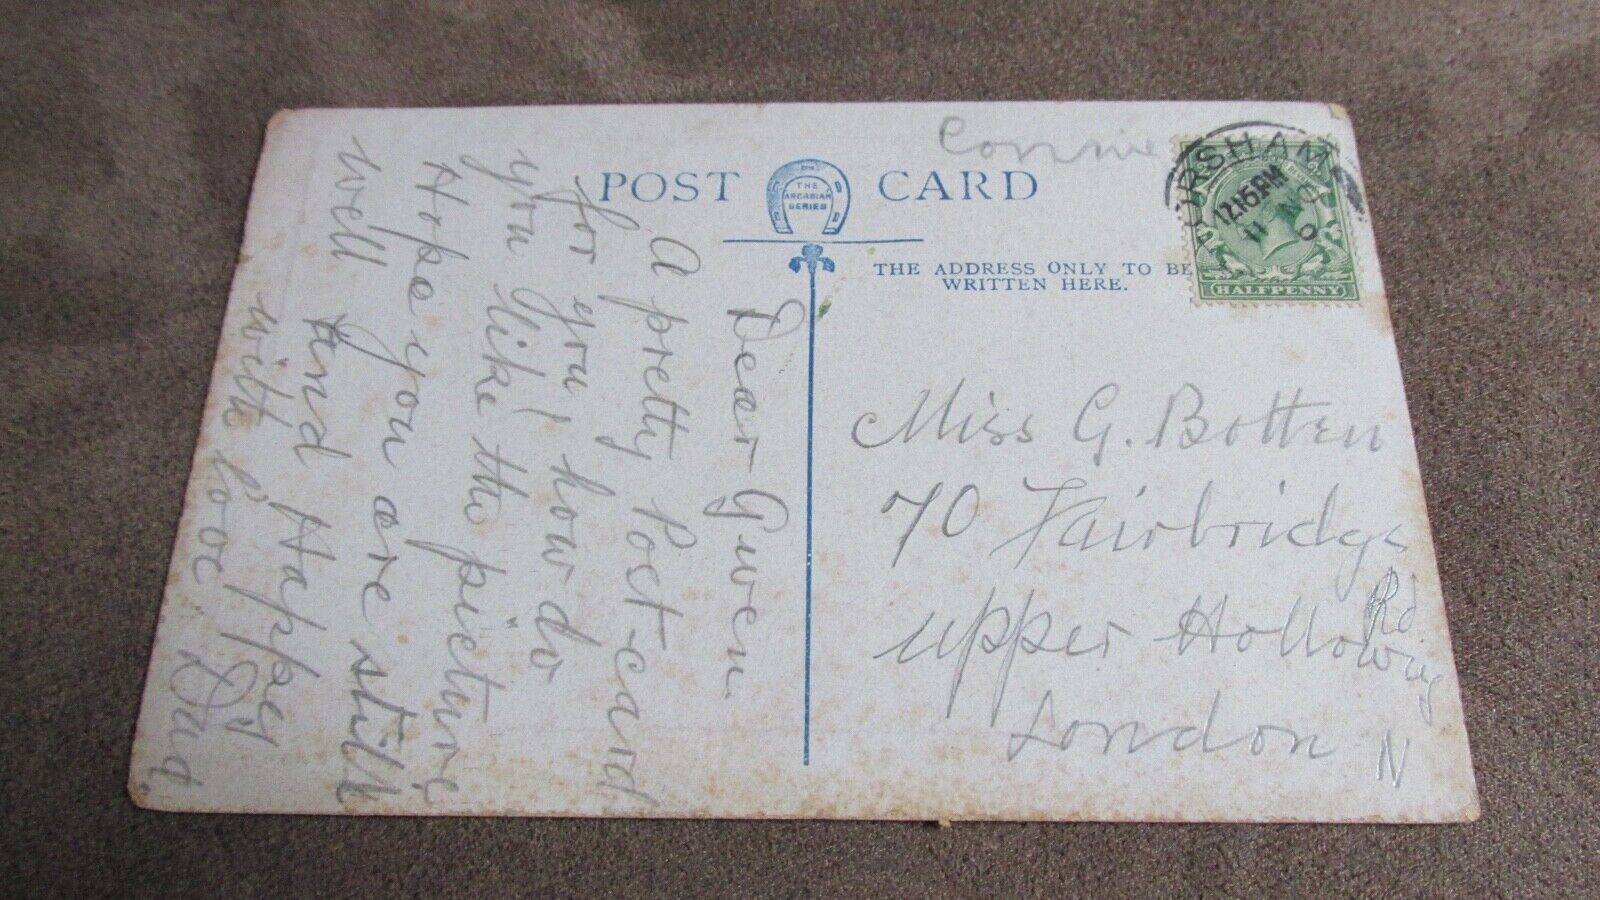 Connie
POST CARD
THE
ARCADIAN
SERIES
THE ADDRESS ONLY TO BE
WRITTEN HERE.
HORSHAM
12.15 PM
11 NO
HALFPENNY
Dear Gwen.
A pretty Post-card
for you, how do
you like the picture
Hope you are still
well And Happy
with love Dad.
Miss G. Botten
70 Fairbridge
Rd.
Upper Holloway
London N